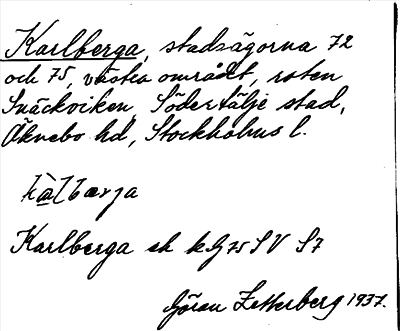 Karlberga, stadsägorna 72
och 75, västra området, roten
Snäckviken, Södertälje stad,
Öknebo hd, Stockholms l.
Karlberga ek kG 75 SV S7
Gören Zetterberg 1937.